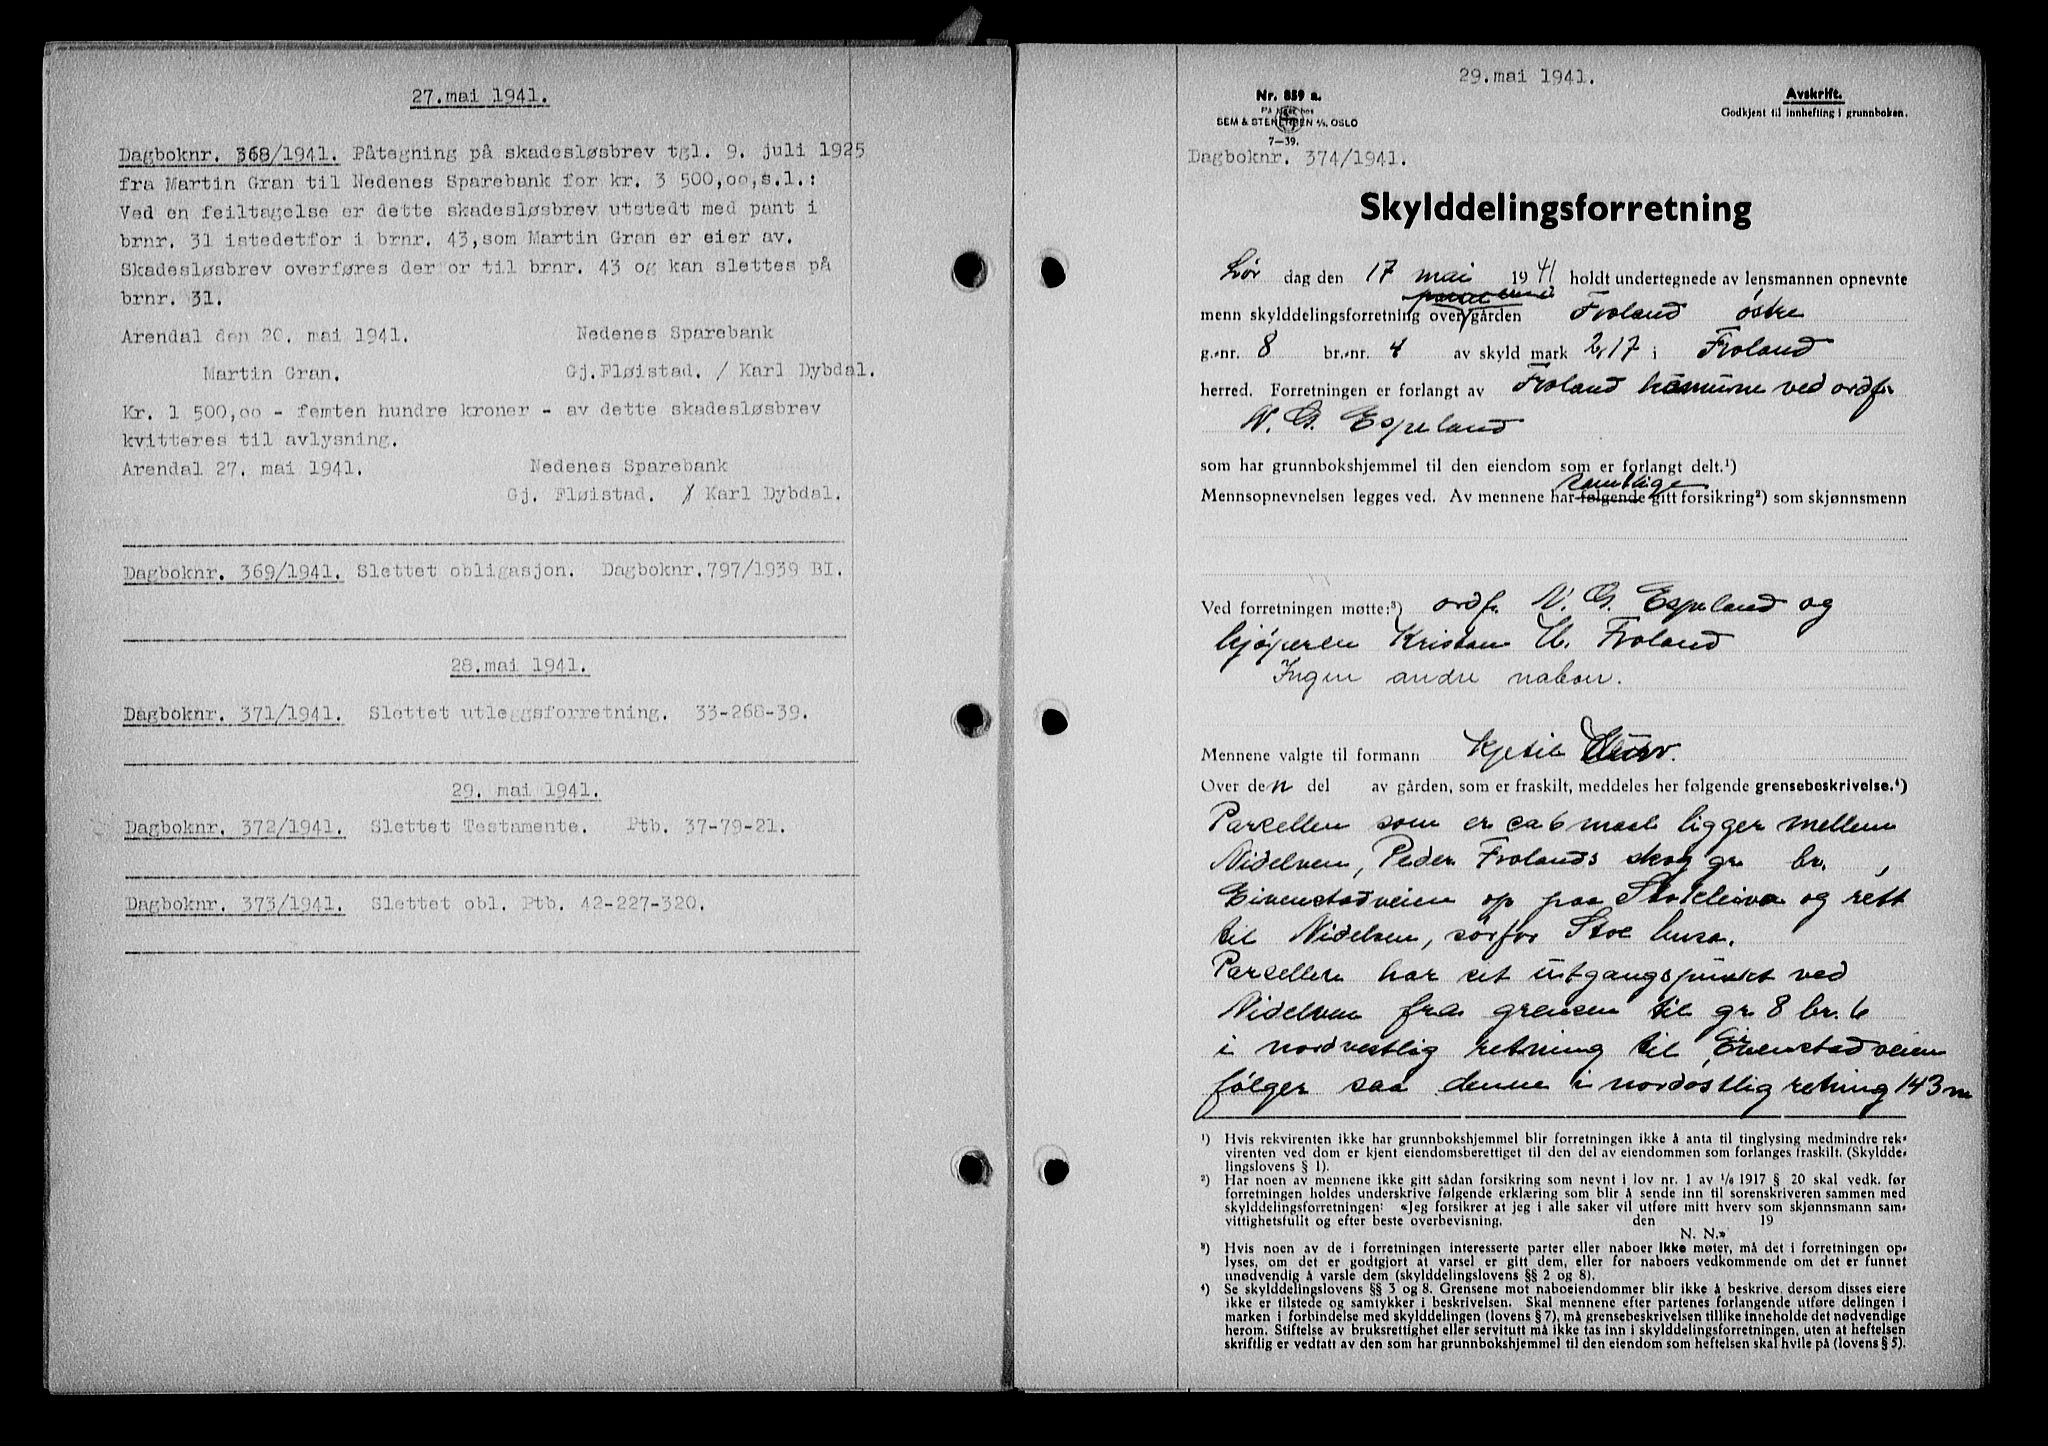 27.mai 1941.
Dagboknr. 368/1941. Påtegning på skadesløsbrev tgl. 9. juli 1925
fra Martin Gran til Nedenes Sparebank for kr. 3 500,oo,s.l.:
Ved en feiltagelse er dette skadesløsbrev utstedt med pant i
brnr. 31 istedetfor i brnr. 43,som Martin Gran er eier av.
Skadesløsbrev overføres der or til brnr. 43 og kan slettes på
brnr. 31.
Arendal den 20. mai 1941. Nedenes Sparebank
Martin Gran. Gj.Fløistad. / Karl Dybdal.
Kr. 1 500,oo - femten hundre kroner - av dette skadesløsbrev
kvitteres til avlysning.
Arendal 27. mai 1941. Nedenes Sparebank
Gj. Fløistad. / Karl Dybdal.
Dagboknr. 369/1941. Slettet obligasjon. Dagboknr.797/1939 BI.
28.mai 1941.
Dagboknr. 371/1941. Slettet utleggsforretning. 33-268-39.
29. mai 1941.
Dagboknr. 372/1941. Slettet Testamente. Ptb. 37-79-21.
Dagboknr. 373/1941. Slettet obl. Ptb. 42-227-320.
29.mai 1941.
Nr. 859 a.
På lager hos
SEM & STENERSEN A/S, OSLO
7—39.
Avskrift.
Godkjent til innhefting i grunnboken.
Dagboknr. 374/1941.
Skylddelingsforretning
Lør dag den 17 mai 1941 holdt undertegnede av lensmannen opnevnte
menn skylddelingsforretning over gården Froland østre
g.-nr. 8 br.-nr. 4 av skyld mark 2,17 i Froland
herred. Forretningen er forlangt av Froland komune ved ordf.
N. G. Espeland
som har grunnbokshjemmel til den eiendom som er forlangt delt.¹)
samtlige
Mennsopnevnelsen legges ved. Av mennene har følgende gitt forsikring²) som skjønnsmenn
Ved forretningen møtte:³) ordf. N. G. Espeland og
kjøperen Kristen Froland
Ingen andre naboer.
Mennene valgte til formann Kjetil
Over den del av gården, som er fraskilt, meddeles her følgende grensebeskrivelse.⁴)
Parsellen som er ca 6 maal ligger mellem
Nidelven, Peder Frolands skog gr br. ,
Eivenstadveien op paa Stokleiva og rett
til Nidelven, sørfor
Parsellen har set utgangspunkt ved
Nidelven fra grensen til gr 8 br. 6
i nordvestlig retning til Eivenstadveien
følger saa denne i nordøstlig retning 143 m
¹) Hvis rekvirenten ikke har grunnbokshjemmel blir forretningen ikke å anta til tinglysing medmindre rek-
virenten ved dom er kjent eiendomsberettiget til den del av eiendommen som forlanges fraskilt. (Skyldde-
lingslovens § 1).
²) Har noen av mennene ikke gitt sådan forsikring som nevnt i lov nr. 1 av 1/6 1917 § 20 skal vedk. før
forretningen holdes underskrive følgende erklæring som blir å sende inn til sorenskriveren sammen med
skylddelingsforretningen: «Jeg forsikrer at jeg i alle saker vil utføre mitt hverv som skjønnsmann sam-
vittighetsfullt og efter beste overbevisning. den 19
N. N.»
³) Hvis noen av de i forretningen interesserte parter eller naboer ikke møter, må det i forretningen op-
lyses, om det er godtgjort at varsel er gitt dem, eller for naboers vedkommende om det er funnet
unødvendig å varsle dem (skylddelingslovens §§ 2 og 8).
⁴) Se skylddelingslovens §§ 3 og 8. Grensene mot naboeiendommer blir ikke å beskrive, dersom disses eiere
ikke er tilstede og samtykker i beskrivelsen. Skal mennene efter partenes forlangende utføre delingen i
marken i forbindelse med skylddelingen (lovens § 7), må grensebeskrivelsen tillike inneholde det nødvendige
herom. Stiftelse av bruksrettighet eller servitutt må ikke tas inn i skylddelingsforretningen, uten at heftelsen
skriftlig er vedtatt av den som har grunnbokshjemmel til den eiendom som heftelsen skal hvile på (lovens § 5).